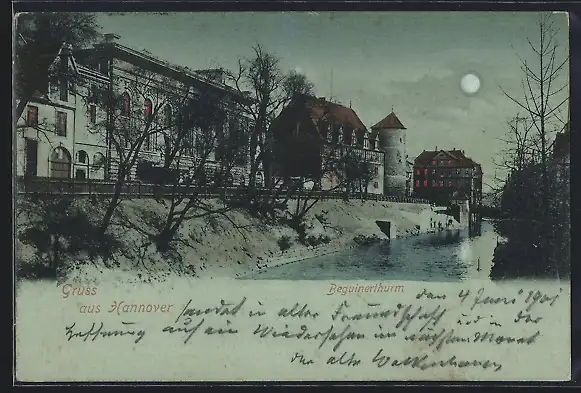 Gruss
aus Hannover
Beguinerthurm
den 4 Juni 1901
sendet in alter Freundschaft und in der
Hoffnung auf ein Wiedersehen im nächsten Monat
der alte